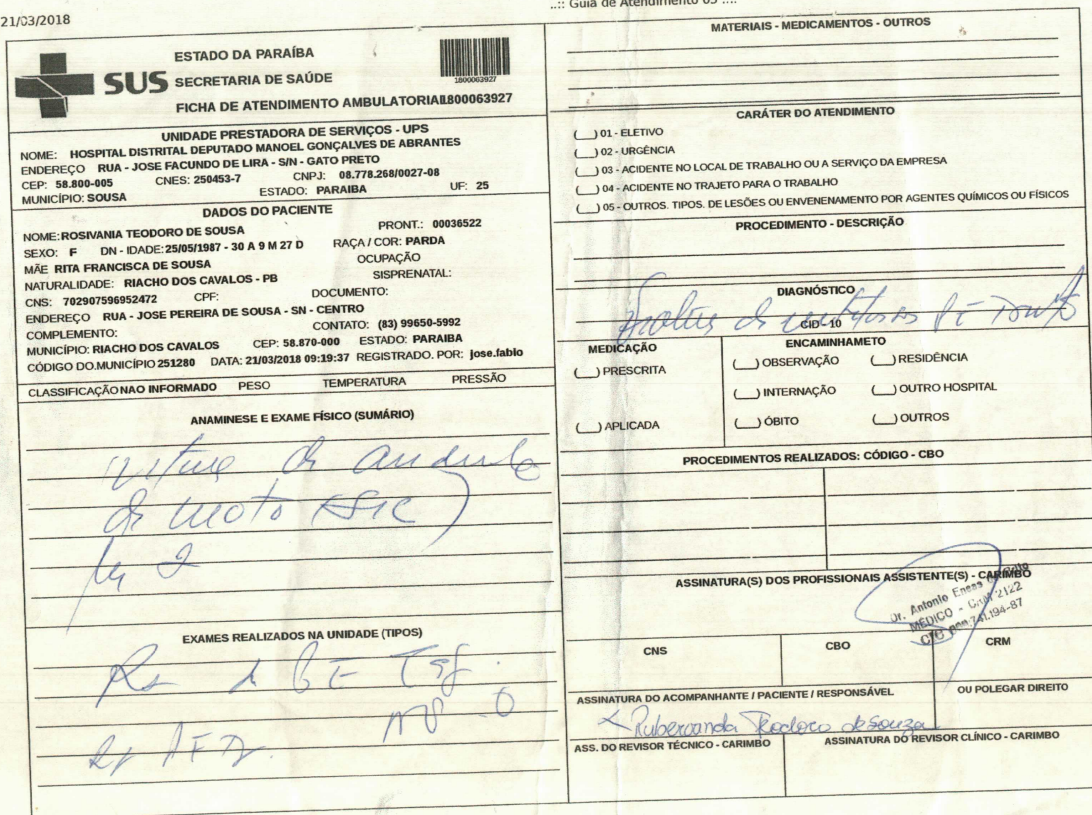 21/03/2018
..:: Guia de Atendimento 05 ::..
SUS
ESTADO DA PARAÍBA
SECRETARIA DE SAÚDE
FICHA DE ATENDIMENTO AMBULATORIAL 1800063927
1800063927
UNIDADE PRESTADORA DE SERVIÇOS - UPS
NOME: HOSPITAL DISTRITAL DEPUTADO MANOEL GONÇALVES DE ABRANTES
ENDEREÇO RUA - JOSE FACUNDO DE LIRA - S/N - GATO PRETO
CEP: 58.800-005 CNES: 250453-7 CNPJ: 08.778.268/0027-08
MUNICÍPIO: SOUSA ESTADO: PARAIBA UF: 25
DADOS DO PACIENTE
NOME: ROSIVANIA TEODORO DE SOUSA PRONT.: 00036522
SEXO: F DN - IDADE: 25/05/1987 - 30 A 9 M 27 D RAÇA / COR: PARDA
MÃE RITA FRANCISCA DE SOUSA OCUPAÇÃO
NATURALIDADE: RIACHO DOS CAVALOS - PB SISPRENATAL:
CNS: 702907596952472 CPF: DOCUMENTO:
ENDEREÇO RUA - JOSE PEREIRA DE SOUSA - SN - CENTRO
COMPLEMENTO: CONTATO: (83) 99650-5992
MUNICÍPIO: RIACHO DOS CAVALOS CEP: 58.870-000 ESTADO: PARAIBA
CÓDIGO DO.MUNICÍPIO 251280 DATA: 21/03/2018 09:19:37 REGISTRADO. POR: jose.fabio
CLASSIFICAÇÃO NAO INFORMADO PESO TEMPERATURA PRESSÃO
ANAMINESE E EXAME FÍSICO (SUMÁRIO)
de
de moto (SIC)
EXAMES REALIZADOS NA UNIDADE (TIPOS)
MATERIAIS - MEDICAMENTOS - OUTROS
CARÁTER DO ATENDIMENTO
(__) 01 - ELETIVO
(__) 02 - URGÊNCIA
(__) 03 - ACIDENTE NO LOCAL DE TRABALHO OU A SERVIÇO DA EMPRESA
(__) 04 - ACIDENTE NO TRAJETO PARA O TRABALHO
(__) 05 - OUTROS. TIPOS. DE LESÕES OU ENVENENAMENTO POR AGENTES QUÍMICOS OU FÍSICOS
PROCEDIMENTO - DESCRIÇÃO
DIAGNÓSTICO
CID - 10
MEDICAÇÃO ENCAMINHAMETO
(__) PRESCRITA (__) OBSERVAÇÃO (__) RESIDÊNCIA
(__) INTERNAÇÃO (__) OUTRO HOSPITAL
(__) APLICADA (__) ÓBITO (__) OUTROS
PROCEDIMENTOS REALIZADOS: CÓDIGO - CBO
ASSINATURA(S) DOS PROFISSIONAIS ASSISTENTE(S) - CARIMBO
Dr. Antonio Eneas
MÉDICO - CRM 2122
741.194-87
CNS CBO CRM
ASSINATURA DO ACOMPANHANTE / PACIENTE / RESPONSÁVEL OU POLEGAR DIREITO
Teodoro de Souza
ASS. DO REVISOR TÉCNICO - CARIMBO ASSINATURA DO REVISOR CLÍNICO - CARIMBO